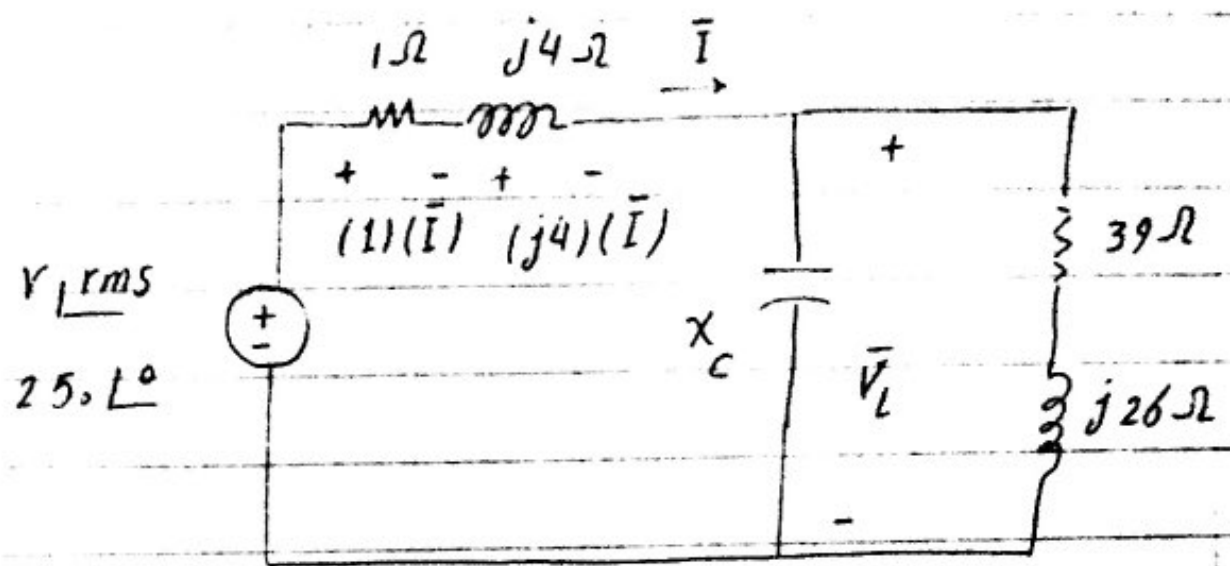 1Ω j4Ω Ī
+ - + -
(1)(Ī) (j4)(Ī)
+
39Ω
V rms
+
-
25.
X_C
V̄_L
j26Ω
-